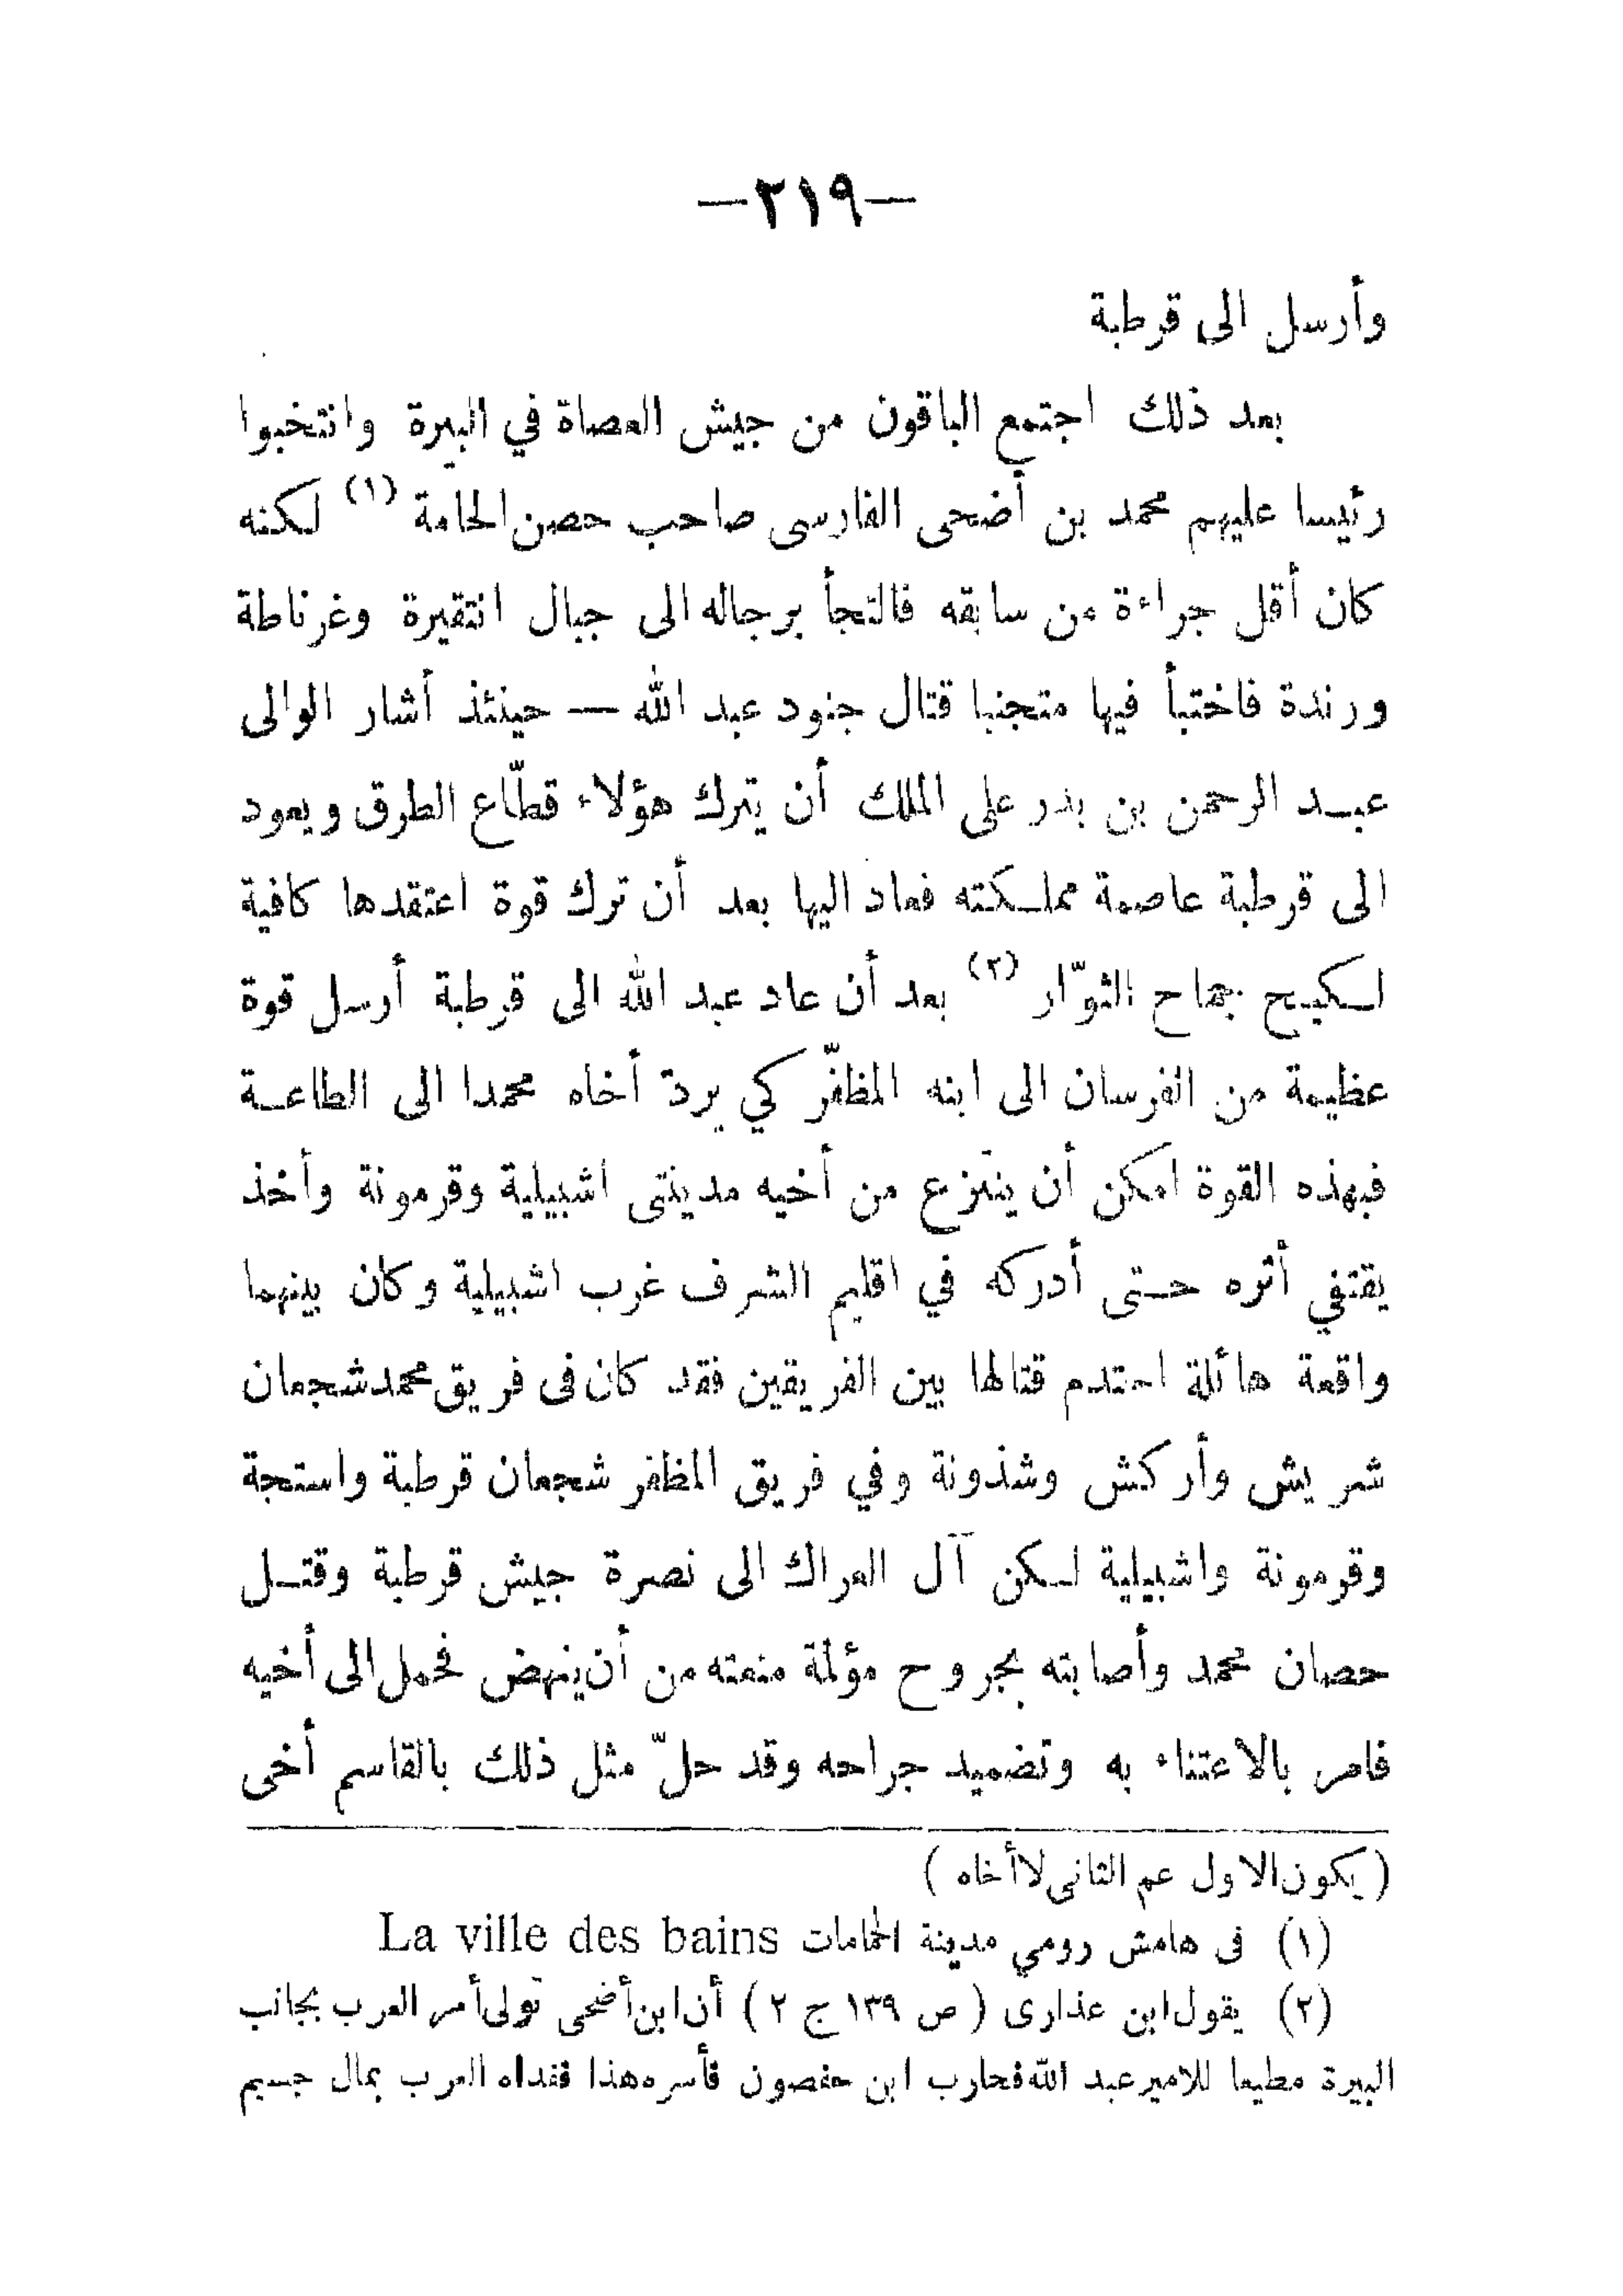 —٢١٩—
وأرسل الى قرطبة
بعد ذلك اجتمع الباقون من جيش العصاة في البيرة وانتخبوا
رئيسا عليهم محمد بن أضحى الفارسى صاحب حصن الحامة (١) لكنه
كان أقل جراءة من سابقه فالتجأ برجاله الى جبال انتقيرة وغرناطة
ورندة فاختبأ فيها متجنبا قتال جنود عبد الله — حينئذ أشار الوالى
عبد الرحمن بن بدر على الملك أن يترك هؤلاء قطّاع الطرق ويعود
الى قرطبة عاصمة مملكته فعاد اليها بعد أن ترك قوة اعتقدها كافية
لكبح جماح الثوّار (٢) بعد أن عاد عبد الله الى قرطبة أرسل قوة
عظيمة من الفرسان الى ابنه المظفّر كي يردّ أخاه محمدا الى الطاعة
فبهذه القوة امكن أن ينتزع من أخيه مدينتى اشبيلية وقرمونة وأخذ
يقتفي أثره حتى أدركه في اقليم الشرف غرب اشبيلية وكان بينهما
واقعة هائلة احتدم قتالها بين الفريقين فقد كان فى فريق محمد شجعان
شريش وأركش وشذونة وفي فريق المظفر شجعان قرطبة واستجة
وقرمونة واشبيلية لكن آل العراك الى نصرة جيش قرطبة وقتل
حصان محمد وأصابته بجروح مؤلمة منعته من أن ينهض فحمل الى أخيه
فامر بالاعتناء به وتضميد جراحه وقد حلّ مثل ذلك بالقاسم أخى
( يكون الاول عم الثانى لا أخاه )
(١) فى هامش رومي مدينة الحامات La ville des bains
(٢) يقول ابن عذارى ( ص ١٣٩ ج ٢ ) أن ابن أضحى تولى أمر العرب بجانب
البيرة مطيعا للامير عبد الله فحارب ابن حفصون فأسره هذا ففداه العرب بمال جسيم